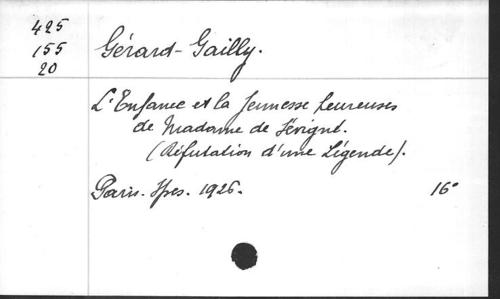 425
155
20
Gérard-Gailly.
L'Enfance et la Jeunesse heureuses
de Madame de Sévigné.
(Réfutation d'une Légende).
Paris. Hfres. 1926. 16°